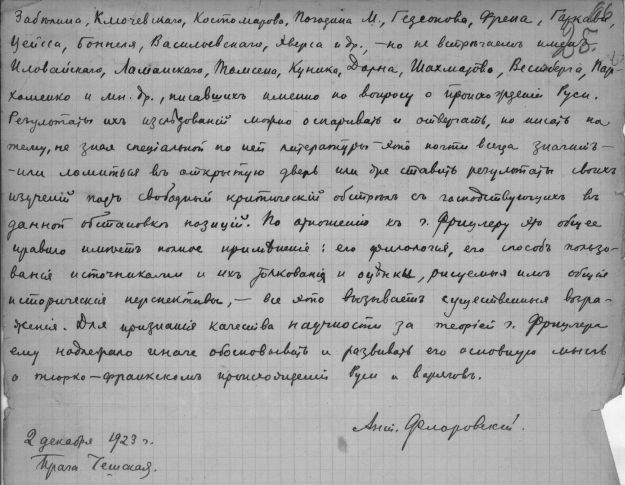 Забѣлина, Ключевскаго, Костомарова, Погодина М., Гедеонова, Френа, Гаркави,
Цейсса, Боннеля, Васильевскаго, Эверса и др., – но не встрѣчаемъ именъ
Иловайскаго, Ламанскаго, Томсена, Куника, Дорна, Шахматова, Вестберга, Пар-
хоменко и мн. др., писавшихъ именно по вопросу о происхожденіи Руси.
Результаты ихъ изслѣдованій можно оспаривать и отвергать, но писать на
тему, не зная спеціальной по ней литературы – это почти всегда значитъ –
– или ломиться въ открытую дверь или же ставить результаты своихъ
изученій подъ свободный критическій обстрѣлъ съ господствующихъ въ
данной обстановкѣ позицій. По отношенію къ г. Фрицлеру это общее
правило имѣетъ полное примѣненіе: его филологія, его способъ пользо-
ванія источниками и ихъ толкованія и оцѣнки, рисуемыя имъ общія
историческія перспективы, – все это вызываетъ существенныя возра-
женія. Для признанія качества научности за теоріей г. Фрицлера
ему надлежало иначе обосновывать и развивать его основную мысль
о тюрко-франкскомъ происхожденіи Руси и варяговъ.
Ант. Флоровскій.
2 декабря 1923 г.
Прага Чешская.